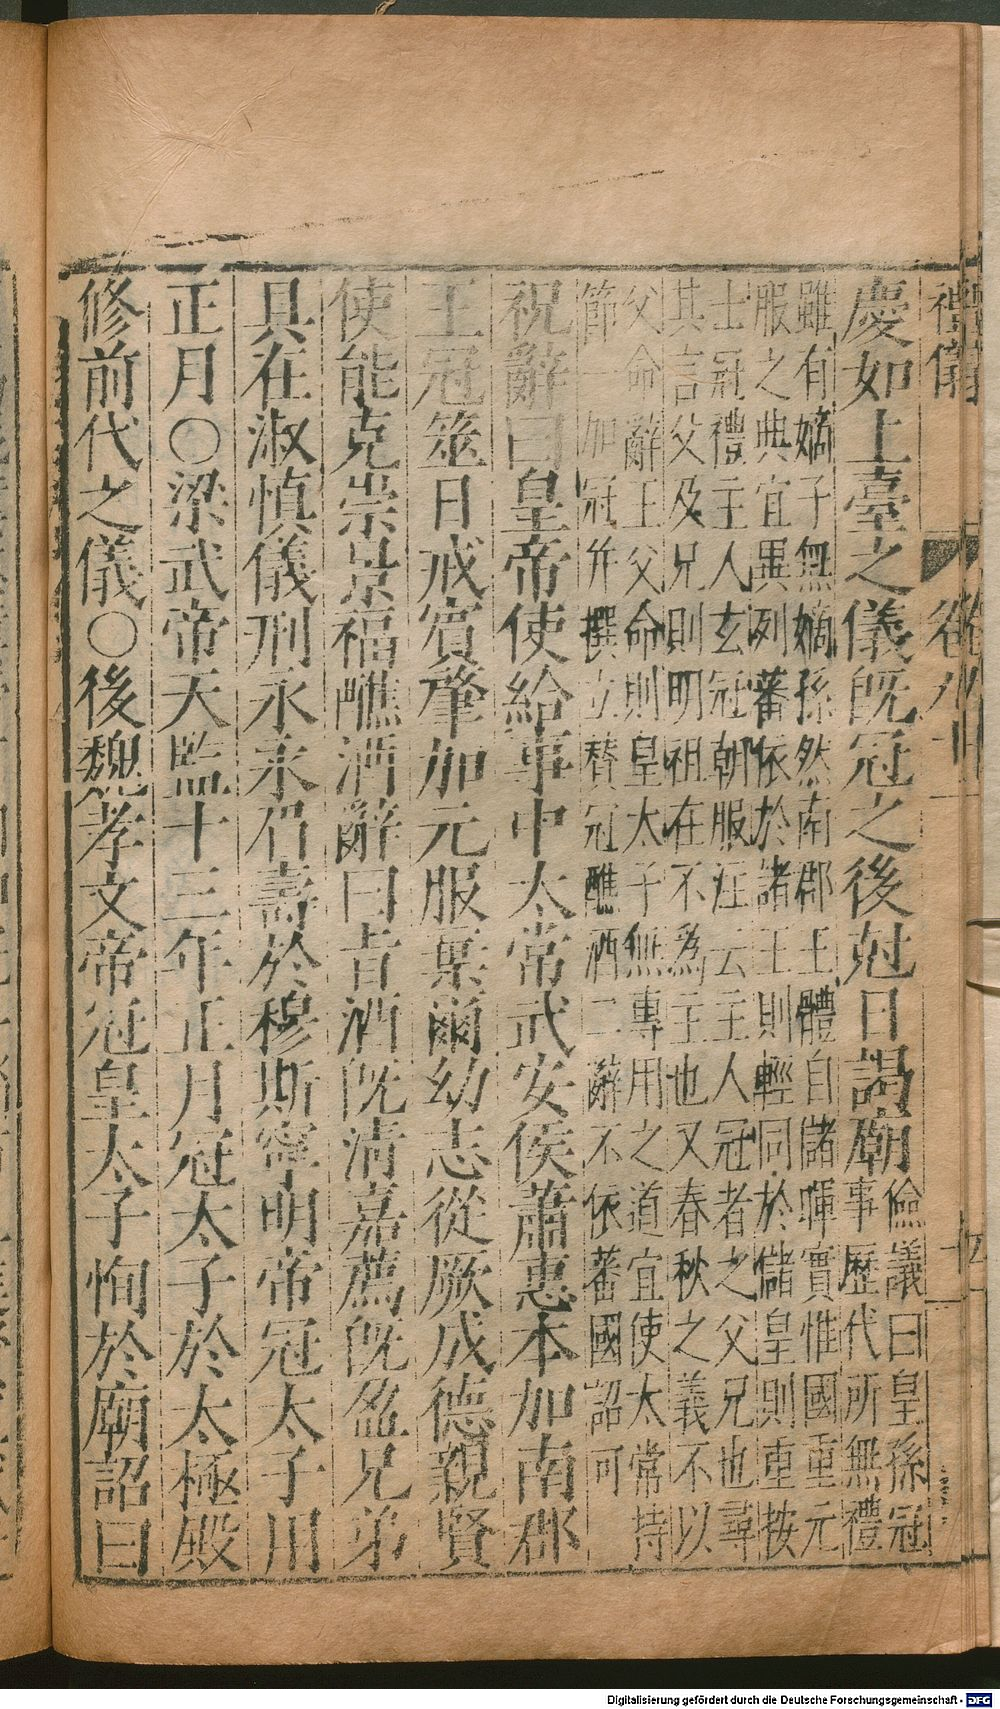 禮儀
慶如上臺之儀既冠之後尅日謁廟
儉議曰皇孫冠
事歷代所無禮
雖有嫡子無嫡孫然南郡王體自儲暉實惟國重元
服之典宜異列蕃依於諸王則輕同於儲皇則重按
士冠禮主人玄冠朝服注云主人冠者之父兄也尋
其言父及兄則明祖在不為主也又春秋之義不以
父命辭王父命則皇太子無專用之道宜使太常持
節一加冠并撰立賛冠醮酒二辭不依蕃國詔可
祝辭曰皇帝使給事中太常武安侯蕭惠本加南郡
王冠筮日戒賓肇加元服棄爾幼志從厥成德親賢
使能克崇景福醮酒辭曰旨酒既清嘉薦既盈兄弟
具在淑慎儀刑永永眉壽於穆斯寧明帝冠太子用
正月〇梁武帝天監十三年正月冠太子於太極殿
修前代之儀〇後魏孝文帝冠皇太子恂於廟詔曰
Digitalisierung gefördert durch die Deutsche Forschungsgemeinschaft - DFG